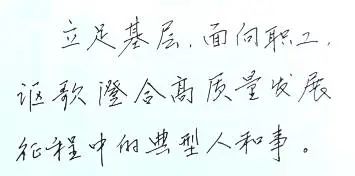 立足基层.面向职工.
讴歌澄合高质量发展
征程中的典型人和事。